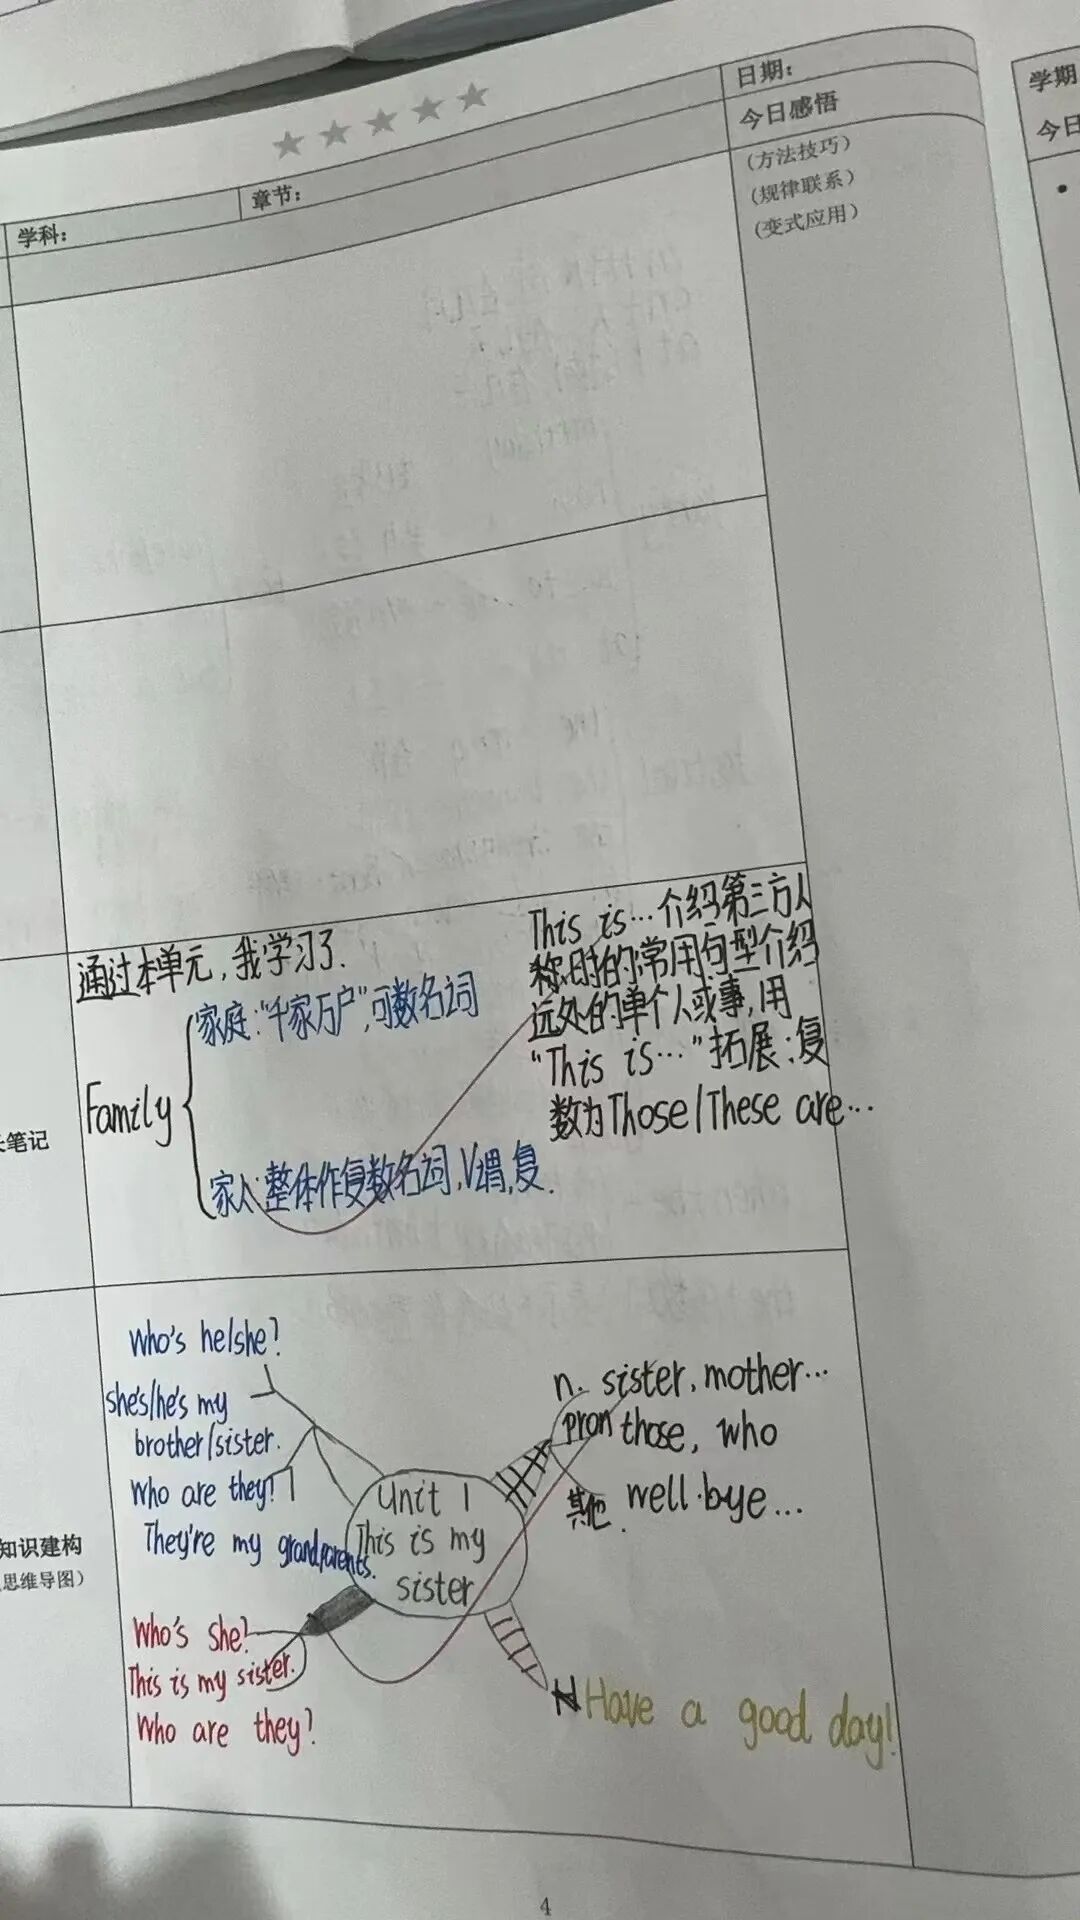 日期：
学期
学科：
章节：
今日感悟
今日
（方法技巧）
（规律联系）
（变式应用）
通过本单元，我学习了.
家庭：“千家万户”，可数名词
Family
家人：整体作复数名词，V谓，复.
This is…介绍第三方人
称时的常用句型介绍
远处的单个人或事，用
“This is…”拓展：复
数为Those/These are…
笔记
Who's he/she?
she's/he's my
brother/sister.
Who are they?
They're my grandparents.
Unit 1
This is my
sister
n. sister, mother…
pron those, who
其他. well.bye…
知识建构
思维导图）
Who's she?
This is my sister.
Who are they?
Have a good day!
4